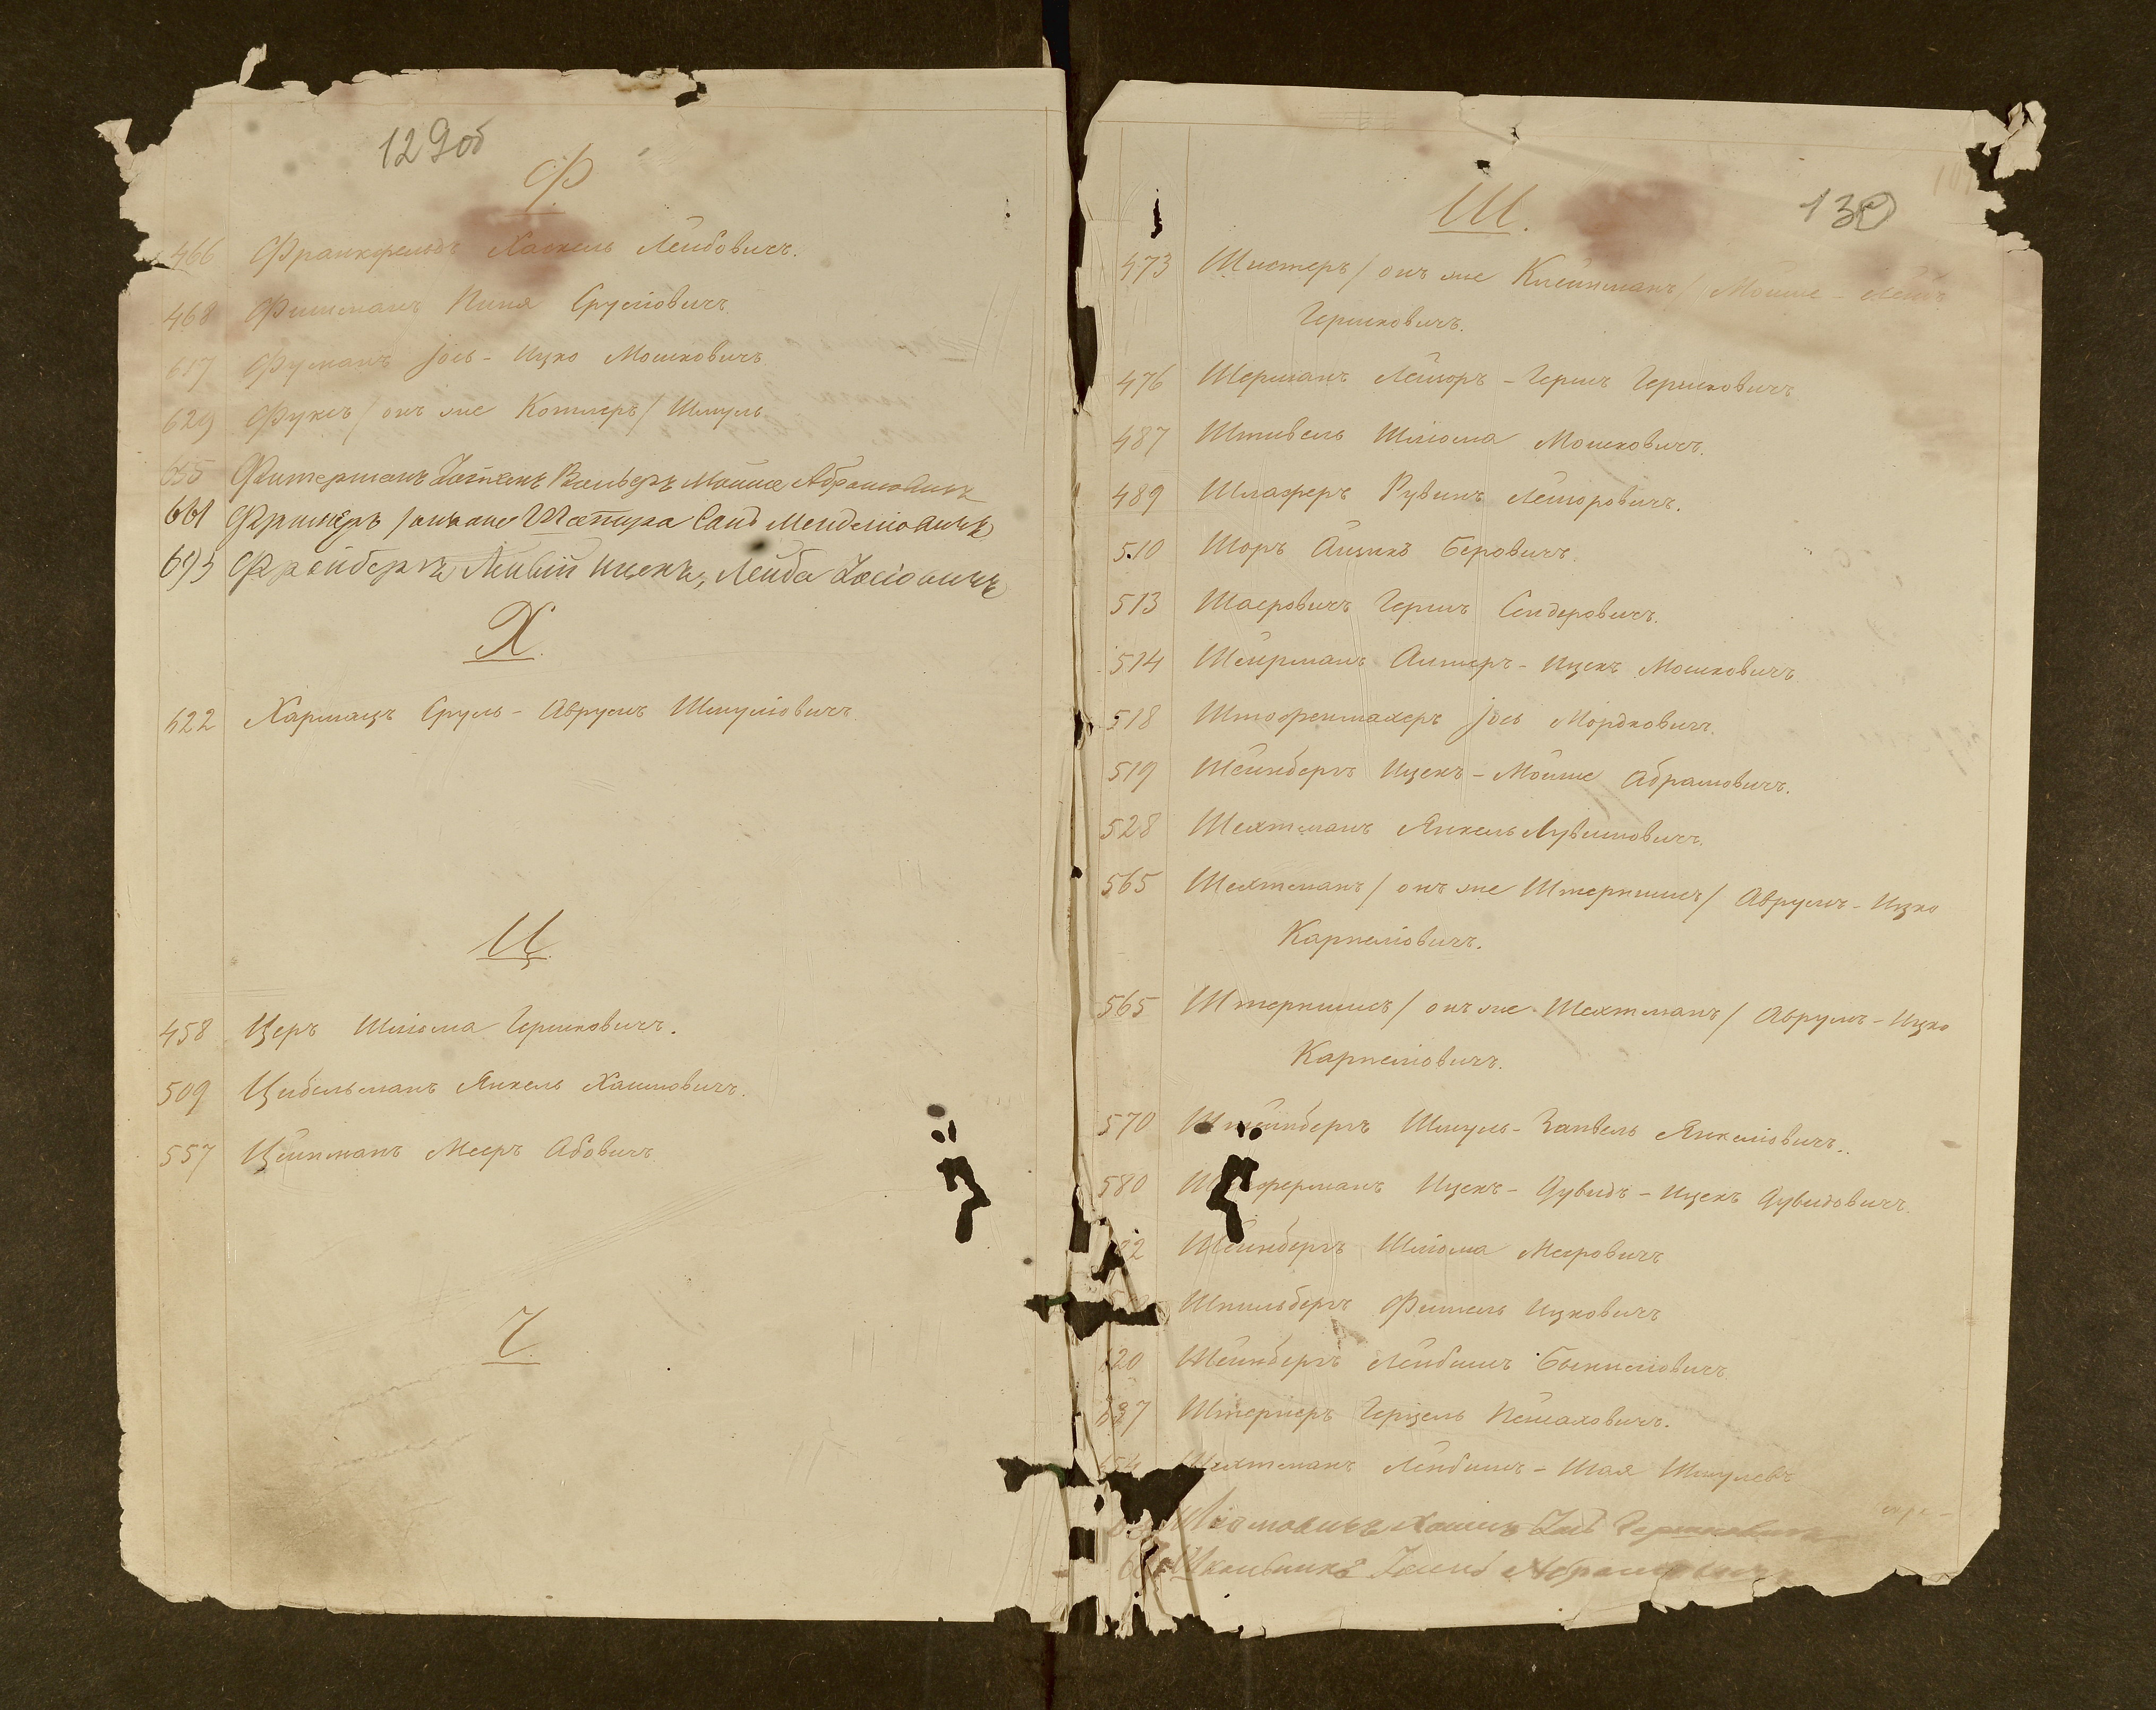 129об
Ф.
466 Франкфельдъ Хаскель Лейбовичъ.
468 Фишманъ Пиня Сруліовичъ.
617 Фуманъ Іось-Ицко Мошковичъ
629 Фуксъ / онъ же Котляръ / Шмуль
635 Фитерманъ Вольфъ Мойше Абрамовичъ
661 онъ же Шапира Санд Менделіовичъ
693 Фрейбергъ Ицекъ, Лейба Іосіовичъ
Х.
622 Хармацъ Сруль-Аврумъ Шмуліовичъ.
Ц.
458 Церъ Шліома Гершковичъ.
509 Цибельманъ Янкель Хаимовичъ.
557 Цейпманъ Мееръ Абовичъ
Ч.
Ш.
130
473 Шистеръ / онъ же Клейнманъ / Мойше-Лейб
Гершковичъ.
476 Шерманъ Лейзоръ-Гершъ Гершковичъ
487 Штивель Шліома Мошковичъ.
489 Шлаферъ Рувинъ Лейзоровичъ.
510 Шоръ Айзикъ Беровичъ.
513 Шаеровичъ Гершъ Сендеровичъ.
514 Шейрманъ Алтеръ-Ицекъ Мошковичъ
518 Штофенмахеръ Іось Мордковичъ.
519 Шейнбергъ Ицекъ-Мойше Абрамовичъ.
528 Шехтманъ Янкель Рувиновичъ.
565 Шехтманъ / онъ же Штерншисъ / Аврумъ-Ицко
Карпеліовичъ.
565 Штерншисъ / онъ же Шехтманъ / Аврумъ-Ицко
Карпеліовичъ.
570 Штейнбергъ Шмуль-Занвель Янкеліовичъ.
580 ферманъ Ицекъ-Дувидъ-Ицекъ Дувидовичъ.
Шейнбергъ Шліома Мееровичъ
Шпильбергъ Фишель Ицковичъ
620 Шейнбергъ Лейбишъ
637 Штернеръ Герцель Пейсаховичъ.
Шехтманъ Лейбишъ-Шая Шмулевъ
Хаимъ Гершковичъ
Школьникъ Абрамовичъ